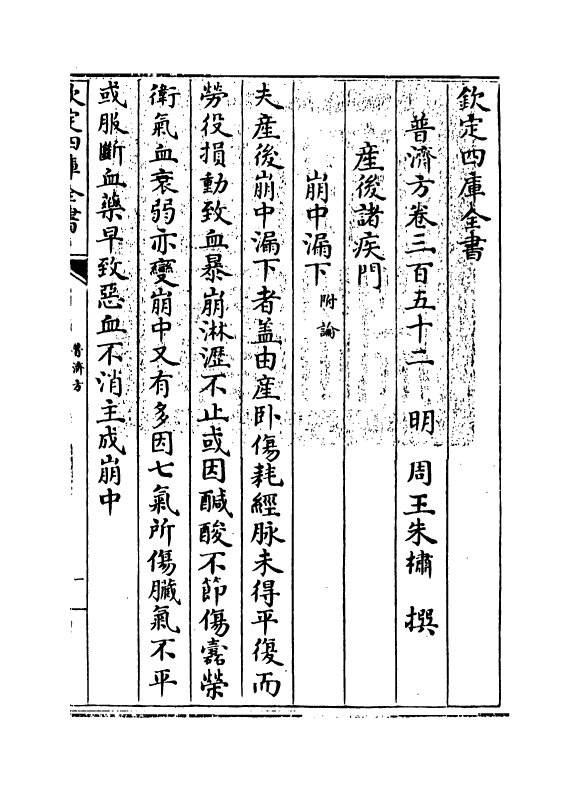 欽定四庫全書
普濟方卷三百五十二 明 周王朱橚 撰
産後諸疾門
崩中漏下附論
夫産後崩中漏下者盖由産卧傷耗經脉未得平復而
勞役損動致血暴崩淋瀝不止或因醎酸不節傷蠹榮
衛氣血衰弱亦變崩中又有多因七氣所傷臟氣不平
或服斷血藥早致惡血不消主成崩中
欽定四庫全書
普濟方
一